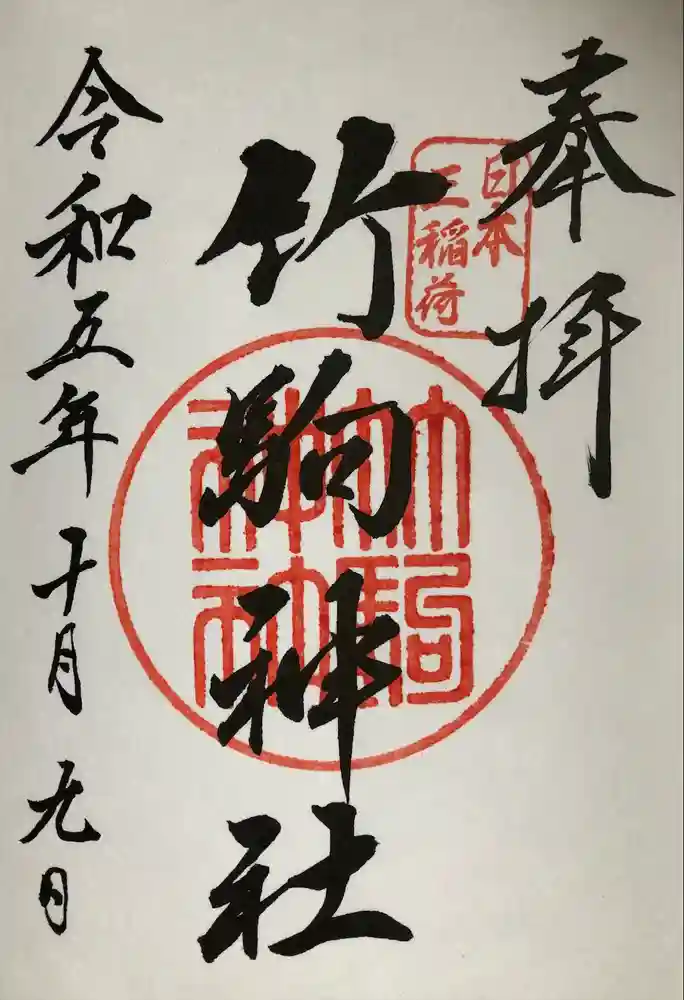 奉拝
日本
三稲荷
竹駒神社
竹駒
神社
令和五年十月九日